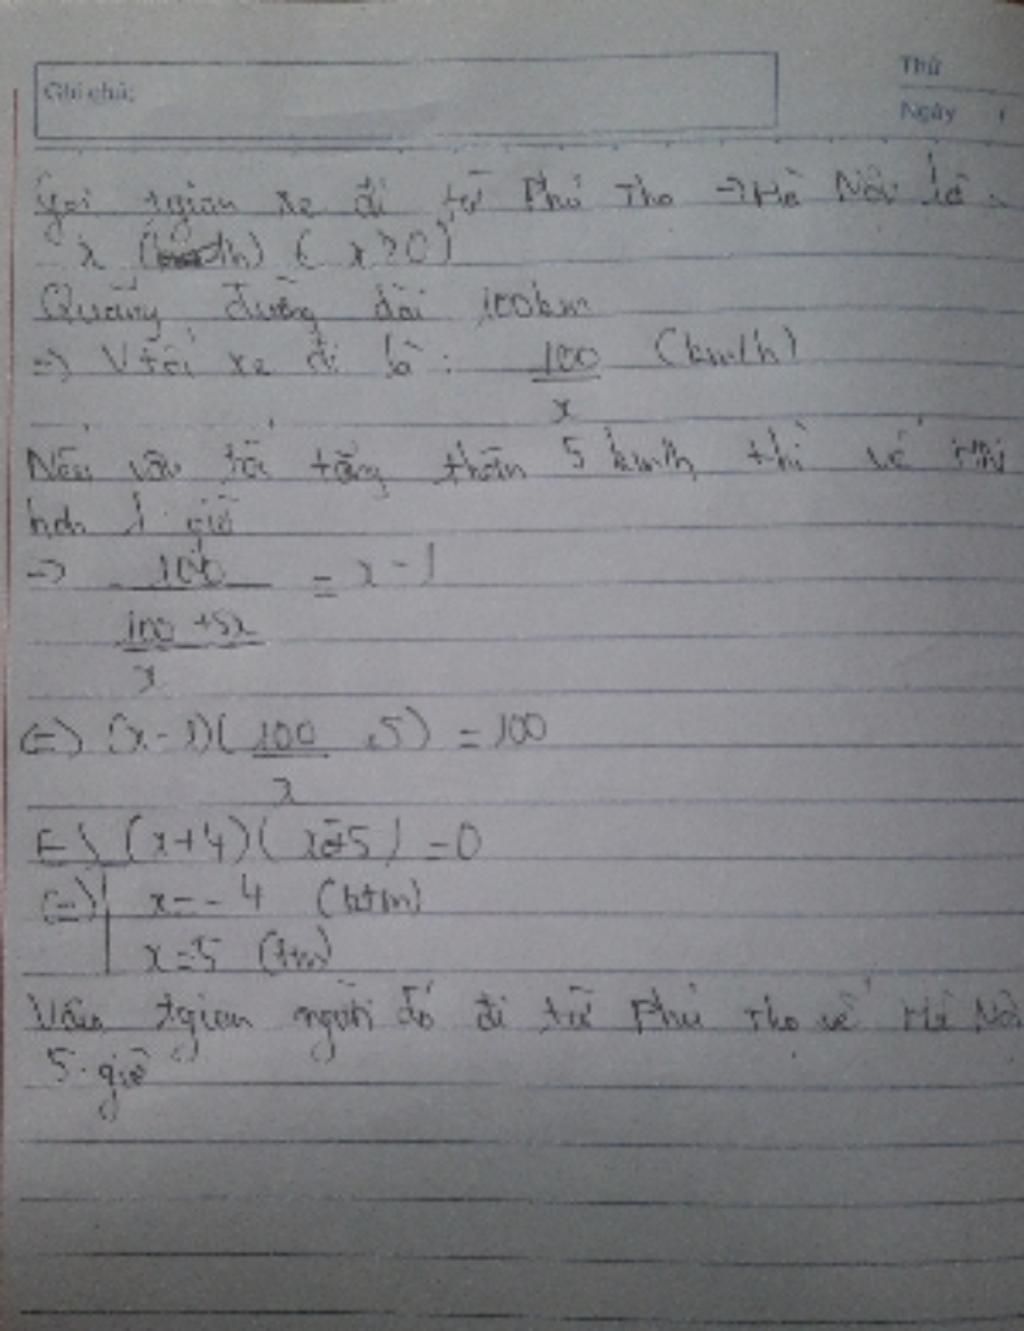 Ghi chú:
Thứ
Ngày
Gọi tgian xe đi từ Phú Thọ → Hà Nội là
x (h) ( x > 0 )
Quãng đường dài 100km
=> Vtốc xe đi là : 100/x (km/h)
Nếu vận tốc tăng thêm 5 km/h thì về
hơn 1 giờ
=> 100 / ((100 + 5x)/x) = x - 1
(=) (x - 1)( 100/x 5) = 100
(x + 4)( x - 5) = 0
(=) x = - 4 (ktm)
x = 5 (tm)
Vậy tgian người đó đi từ Phú Thọ về Hà Nội
5 giờ